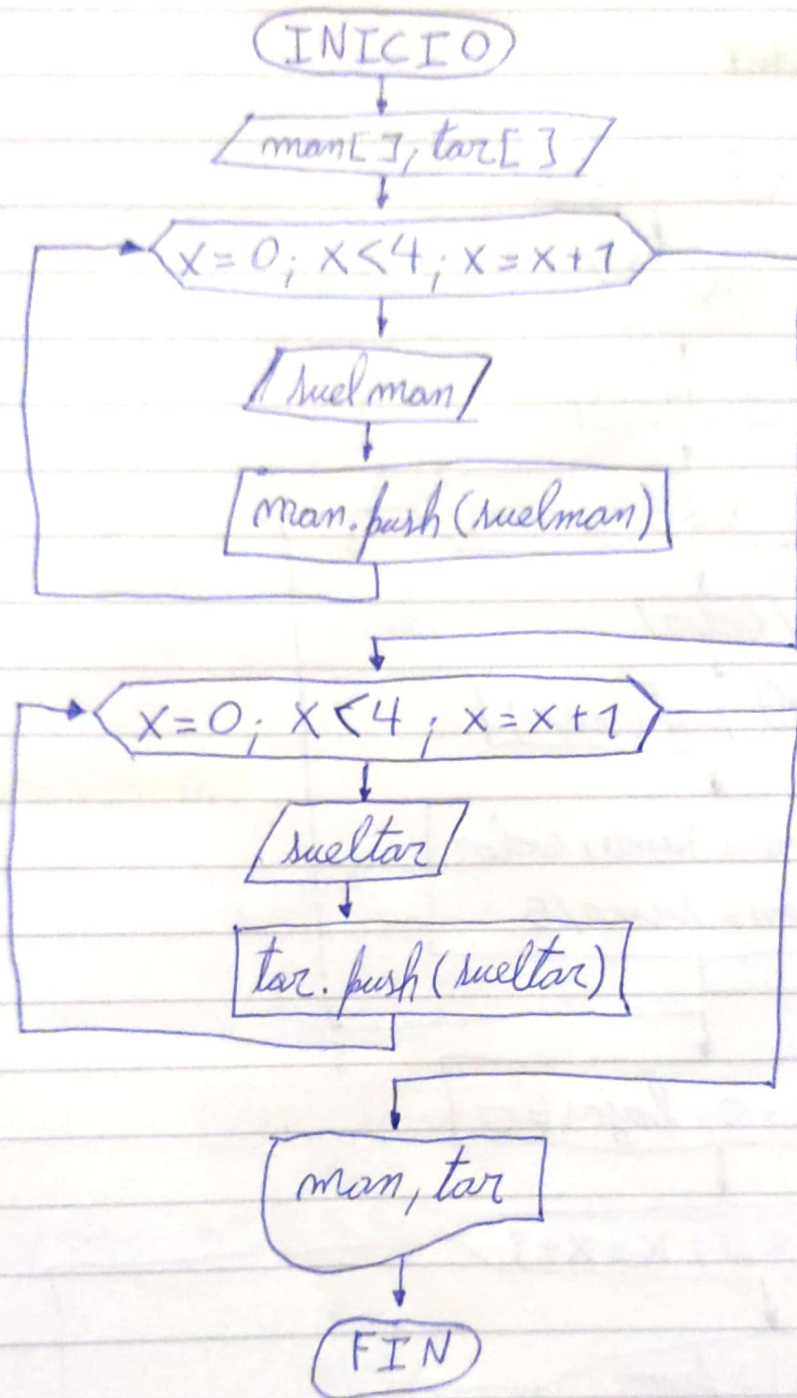 INICIO
man[ ], tar[ ]
x=0; x<4; x=x+1
suelman
man.push(suelman)
x=0; x<4; x=x+1
sueltar
tar.push(sueltar)
man, tar
FIN